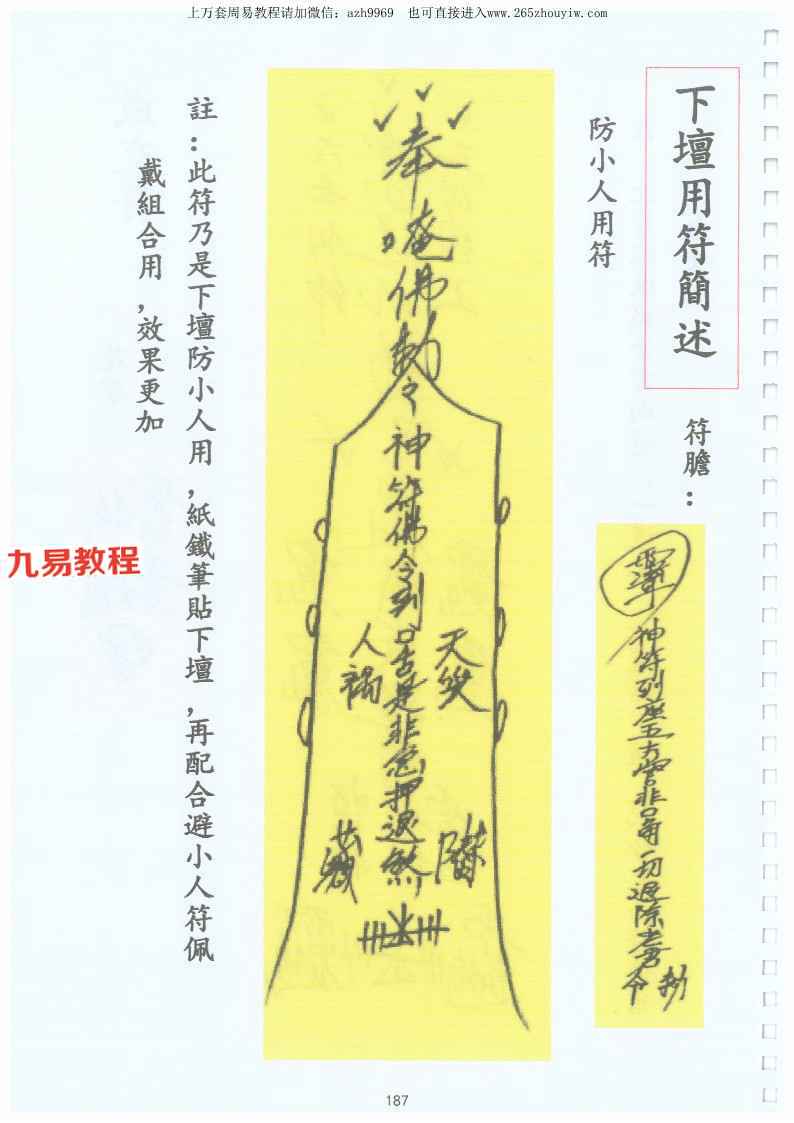 上万套周易教程请加微信：azh9969　也可直接进入www.265zhouyiw.com
下壇用符簡述
防小人用符
符膽：
神符列座五方
一切退除
令 敕
奉唵佛勅令神符佛令到口舌是非急押退煞
天災
人禍
註：此符乃是下壇防小人用，紙鐵筆貼下壇，再配合避小人符佩
戴組合用，效果更加
九易教程
187